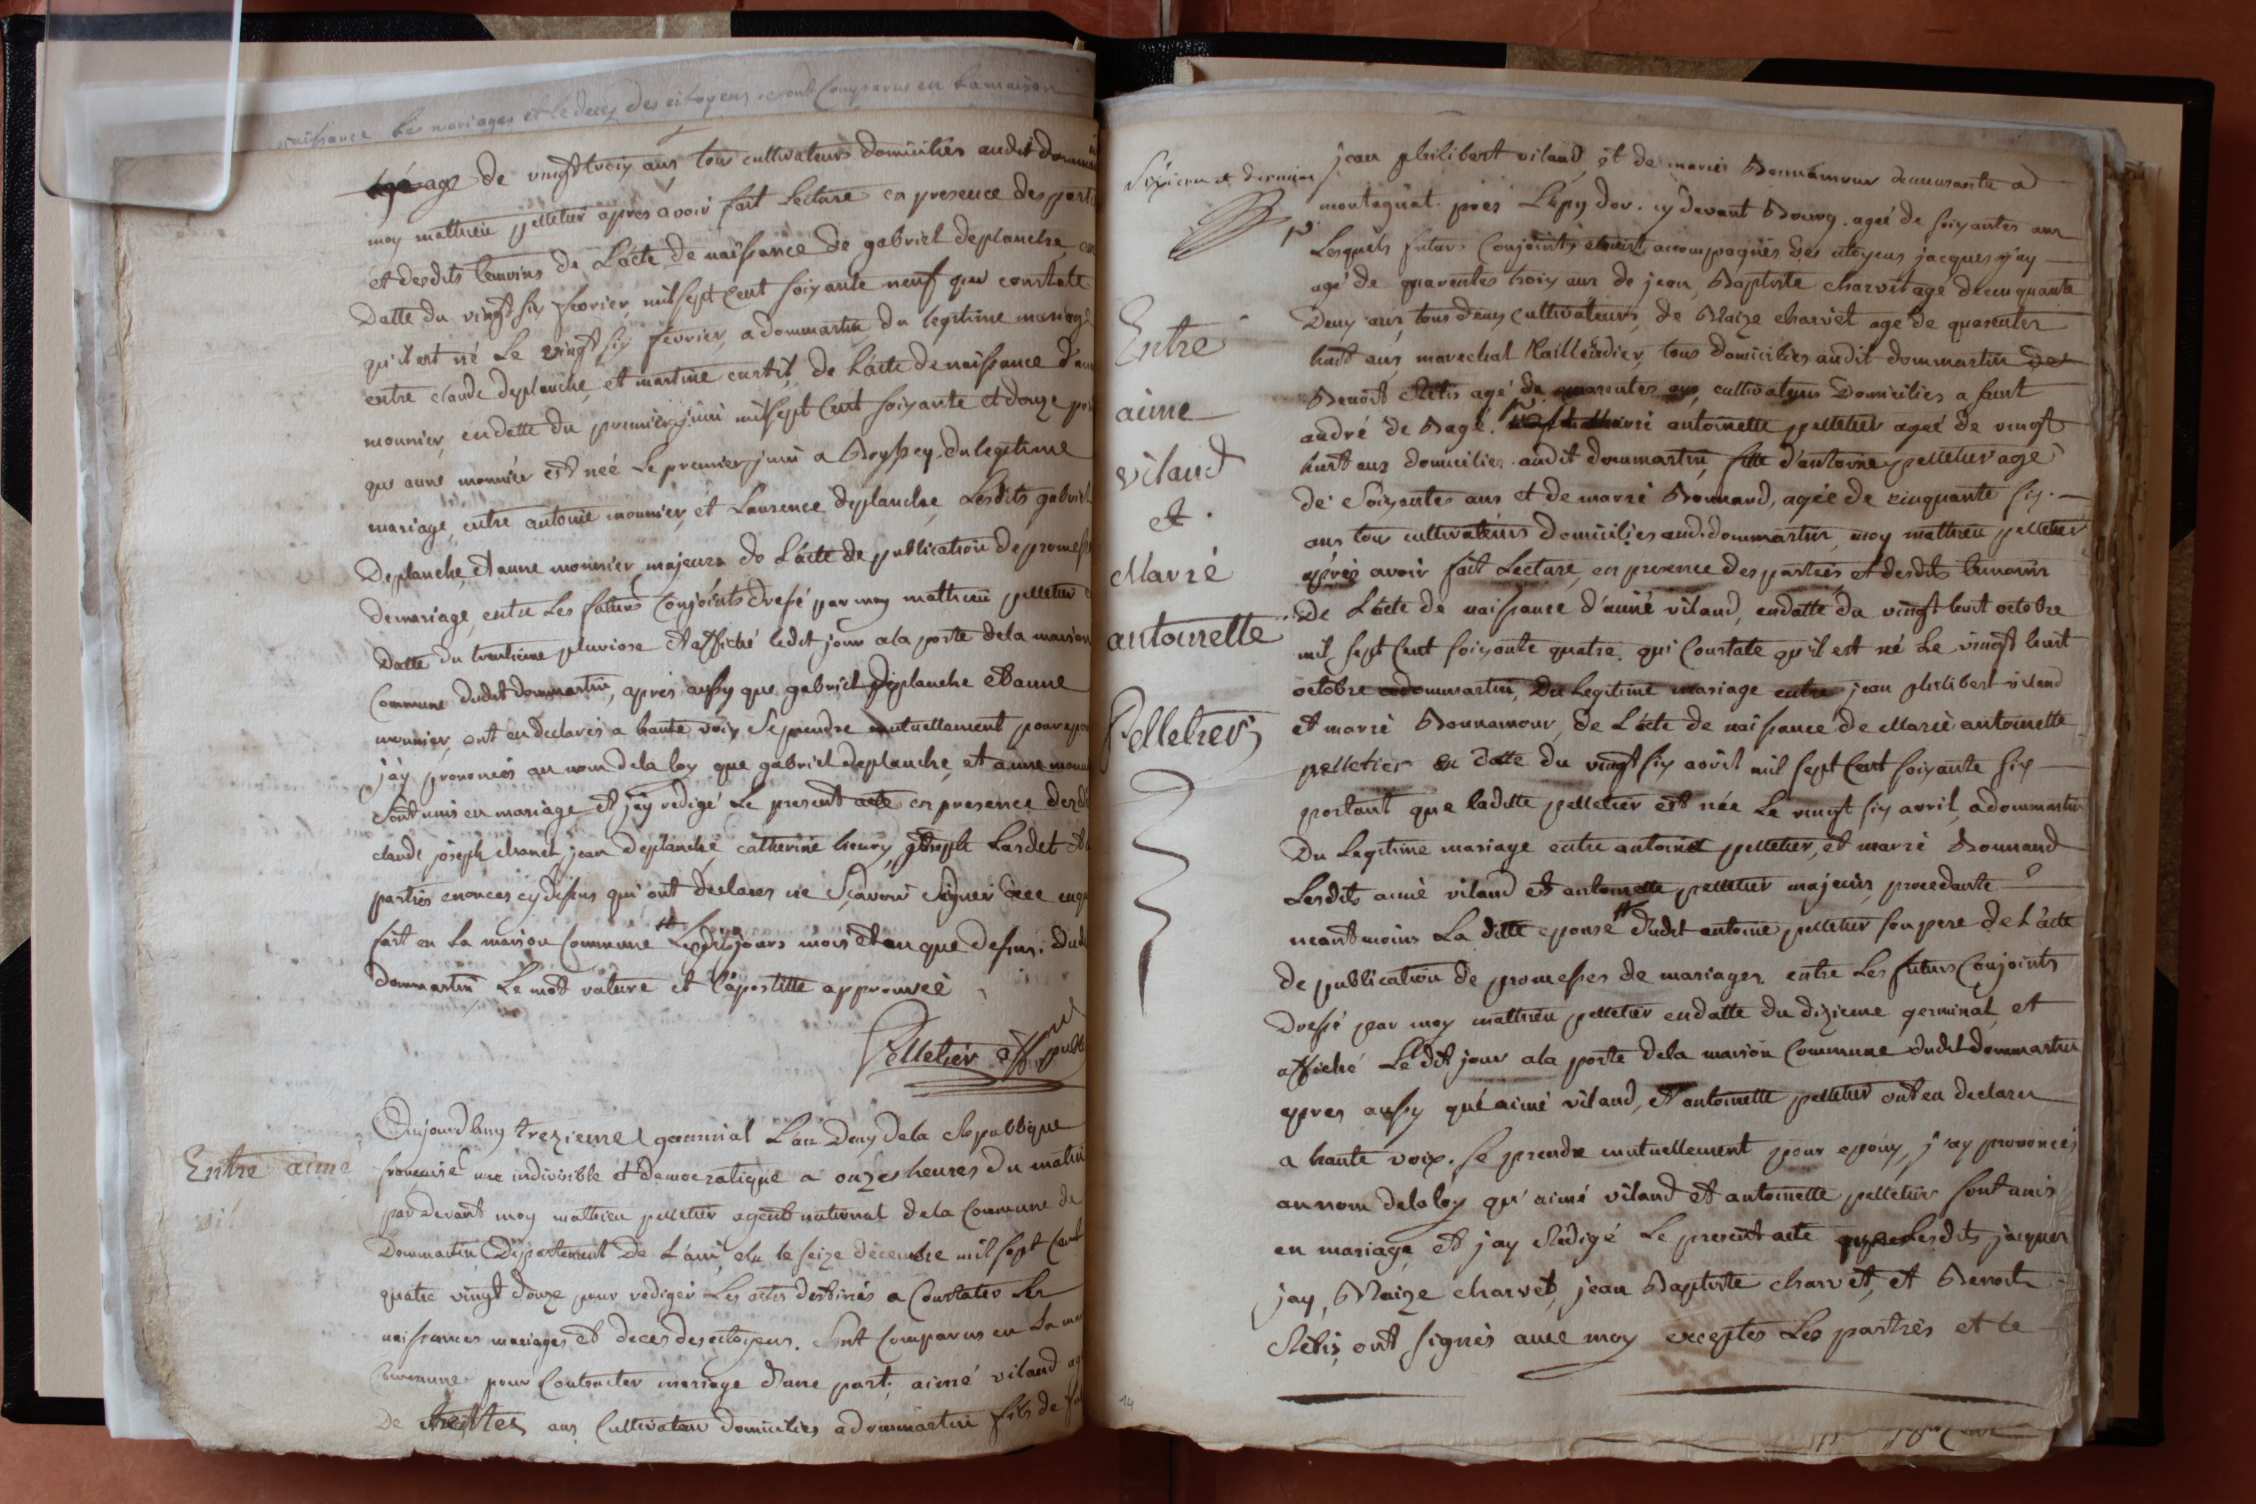 naissance les mariages et le deces des citoyens sont comparus en la maison
age de vingt trois ans tous cultivateurs domiciliés audit
moy mathieu pelletier apres avoir fait Lecture en presence des
et desdits temoins de L'acte de naissance de gabriel deplanche
Datte du vingt six fevrier mil sept Cent soixante neuf qui constate
qu'il est né Le vingt six fevrier a dommartin du legitime mariage
entre claude deplanche et martine curtil, de L'acte de naissance
monnier, en datte du premier juin mil sept Cent soixante et douze
que anne monnier est née Le premier juin a Boyssey du legitime
mariage entre antoine monnier et Laurence deplanche Lesdits gabriel
Deplanche et anne monnier majeurs de L'acte de publication de
de mariage entre Les futurs Conjoints dressé par moy mathieu pelletier
Datte du trentieme pluviose et affiché ledit jour a la porte de la maison
Commune dudit dommartin, apres aussy que gabriel deplanche et anne
monnier, ont eu declarés a haute voix Se prendre mutuellement pour
j'ay prononcés au nom de la loy que gabriel deplanche, et anne
Sont unis en mariage et j'ay redigé Le present acte en presence
claude joseph chanel, jean deplanche catherine heury, joseph Lardet
parties enoncés cy dessus qui ont declarés ne Sçavoir Signer
fait en La maison Commune Lesdits jours mois et an que dessus
dommartin Le mot rature et l'apostille approuveé
Pelletier off publ
Aujourdhuy trezieme germinal L'an Deux de la Republique
francaise une indivisible et democratique a onzes heures du matin
par devant moy mathieu pelletier agent national de la Commune de
Dommartin Departement de L'ain, elu le seize decembre mil sept Cent
quatre vingt douze pour rediger Les actes destinés a Constater Les
naissances mariages et deces des citoyens. Sont Comparus en La
Commune pour Contracter mariage d'une part, aimé viland
De trentes ans Cultivateur domiciliés a dommartin fils de
Entre aimé
vil
Sixieme et dernier
Entre
aime
viland
et
Marié
antoinette
Pelletier
jean philibert viland, et de marie Bonnamour demeurante a
montagnat près L'Epy dor. cy devant Bourg. ageé de soixantes ans
Lesquels futurs Conjoints etoient accompagnés des citoyens jacques jay
agé de quarentes trois ans de jean Baptiste charvet age de cinquante
Deux ans tous deux cultivateurs, de Blaize charvet agé de quarentes
huit ans marechal taillendier, tous domiciliés audit dommartin
Benoit Cletis agé de quarentes ans, cultivateurs Domiciliés a saint
andré de Bagé. antoinette pelletier ageé de vingt
huit ans domiciliés audit dommartin fille d'antoine pelletier agé
de Soixantes ans et de marie Bonnand, agée de cinquante six
ans tous cultivateurs domiciliés aud. dommartin, moy mathieu pelletier
après avoir fait Lecture, en presence des parties et desdits temoins
De L'acte de naissance d'aimé viland, en datte du vingt huit octobre
mil sept Cent soixante quatre, qui Constate qu'il est né Le vingt huit
octobre a dommartin, Du Legitime mariage entre jean philibert viland
et marie Bonnamour, de L'acte de naissance de Marie antoinette
pelletier en datte du vingt six avril mil sept Cent soixante six
portant que ladite pelletier est née Le vingt six avril, a dommartin
Du Legitime mariage entre antoine pelletier, et marie Bonnand
Lesdits aimé viland et antoinette pelletier majeurs, procedante
neantmoins La ditte epouse dudit antoine pelletier son pere de L'acte
de publication de promesses de mariages entre Les futurs Conjoints
Dressé par moy mathieu pelletier en datte du dizieme germinal, et
affiché Le dit jour a la porte de la maison Commune dudit dommartin
apres aussy qu'aimé viland, et antoinette pelletier ont eu declarés
a haute voix. se prendre mutuellement pour epoux, j'ay prononcés
au nom de la loy qu'aimé viland et antoinette pelletier sont unis
en mariage, et jay Redigé Le present acte Lesdits jacques
jay, Blaize charvet, jean Baptiste charvet, et Benoit
Cletis, ont signés avec moy exceptés Les parties et le
14